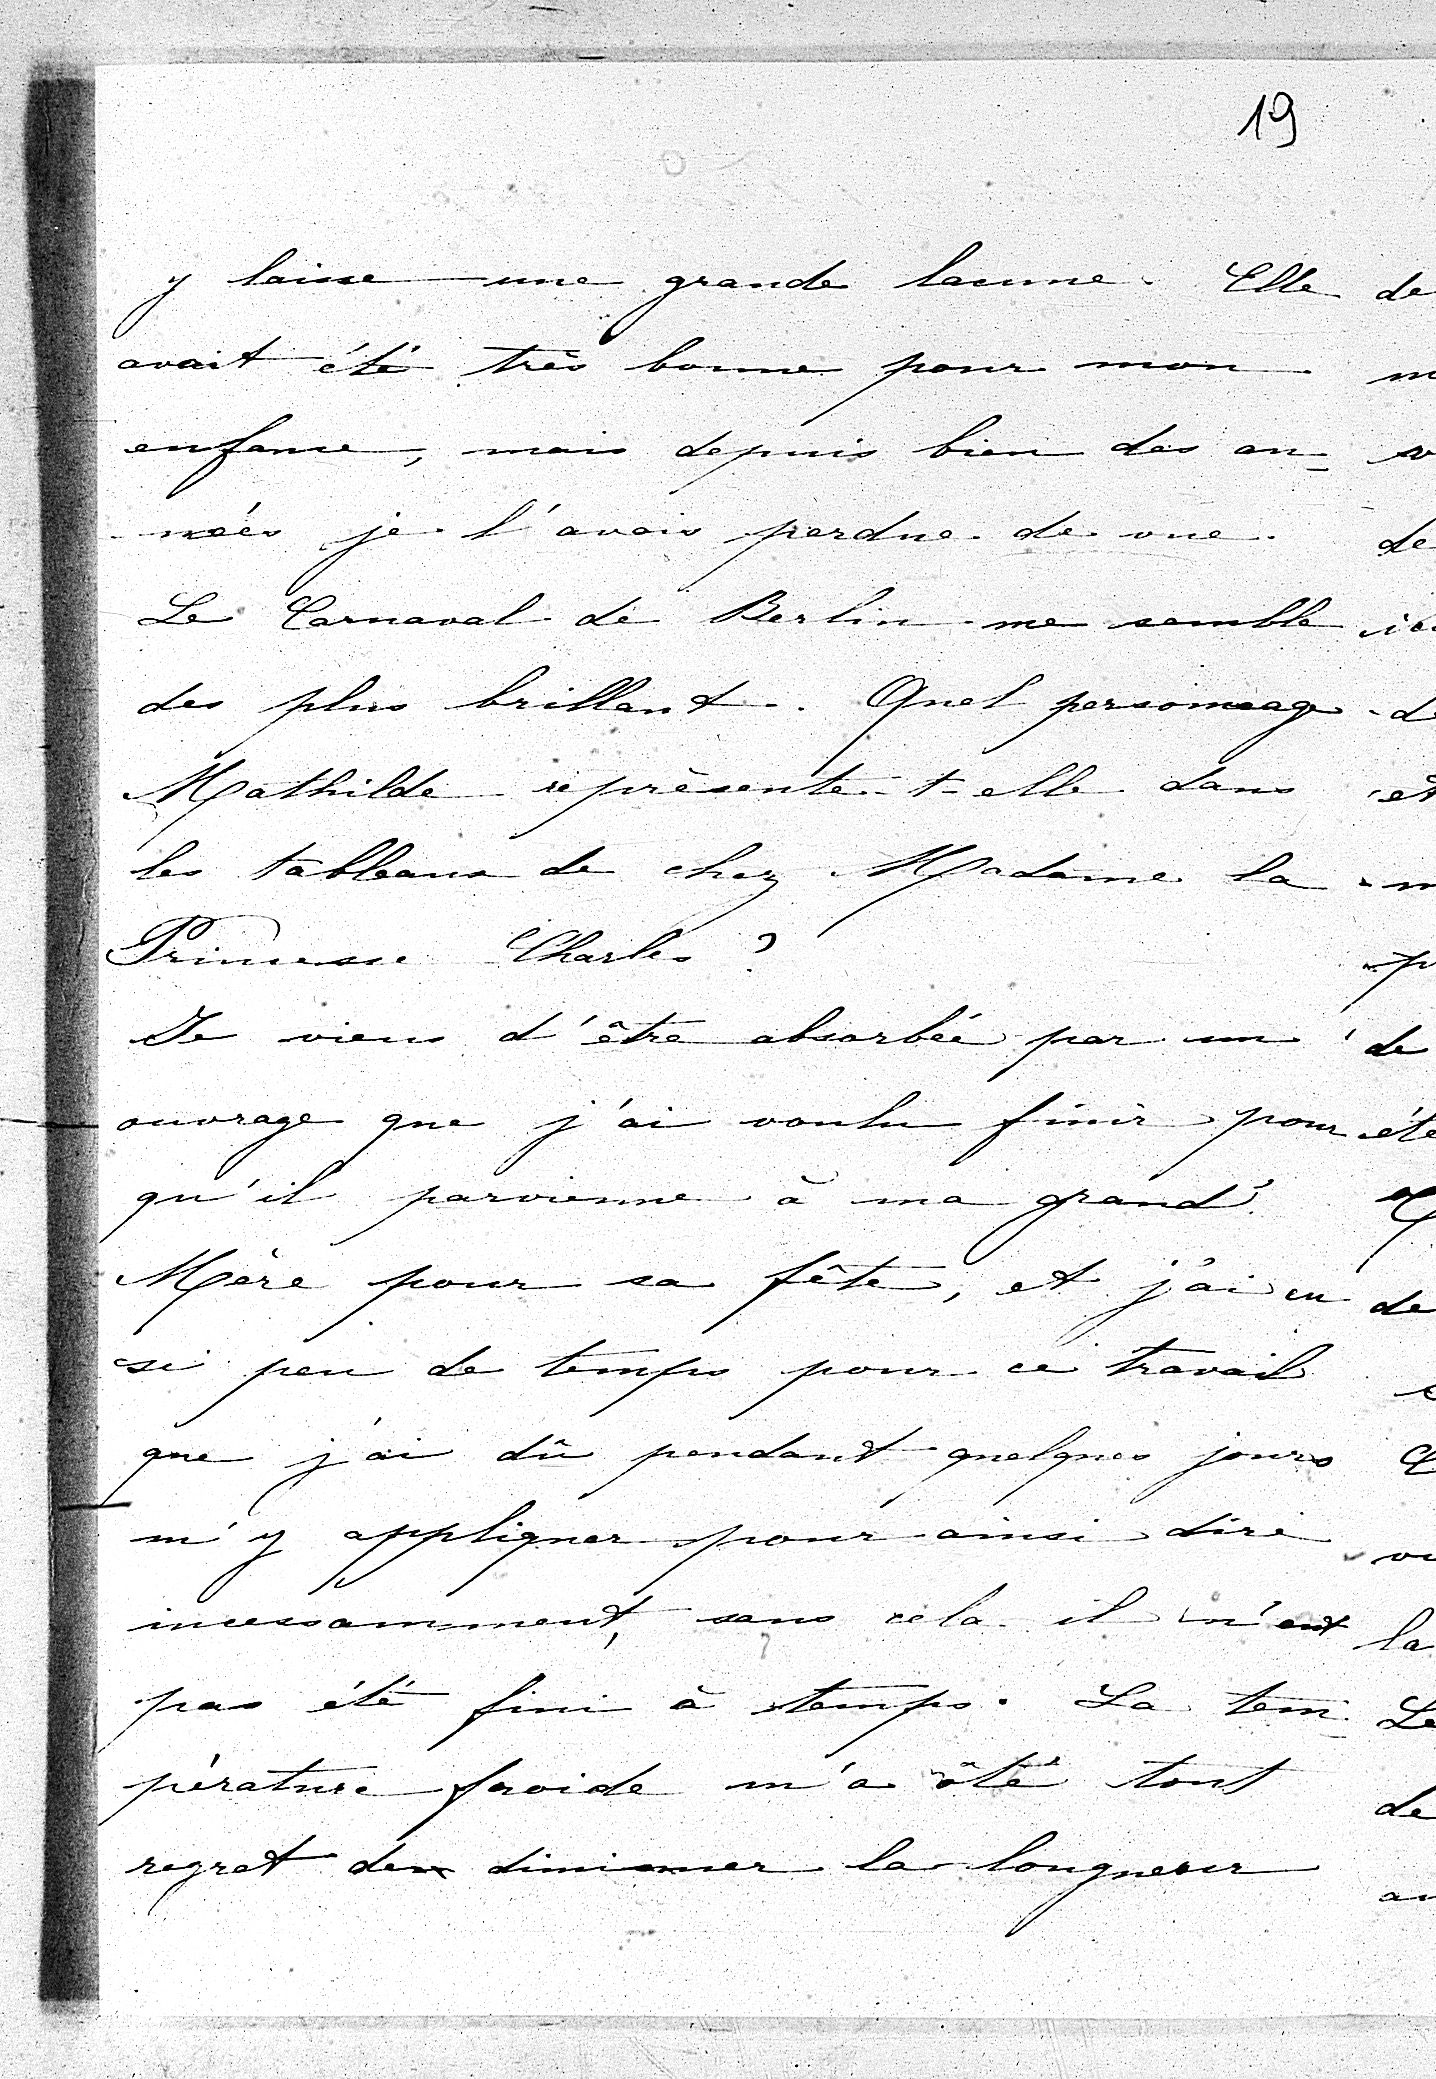 19
y laisse une grande lacune. Elle
avait été très bonne pour mon
enfance, mais depuis bien des an-
nées je l'avais perdue de vue.
Le Carnaval de Berlin me semble
des plus brillant. Quel personnage
Mathilde représente-t-elle dans
les tableaux de chez Madame la
Princesse Charles?
Je viens d'être absorbée par un
ouvrage que j'ai voulu finir pour
qu'il parvienne à ma grand'
Mère pour sa fête, et j'ai eu
si peu de temps pour ce travail
que j'ai dû pendant quelques jours
m'y appliquer pour ainsi dire
incessamment, sans cela il n'eut
pas été fini à temps. La tem-
pérature froide m'a ôté tout
regret de diminuer la longueur